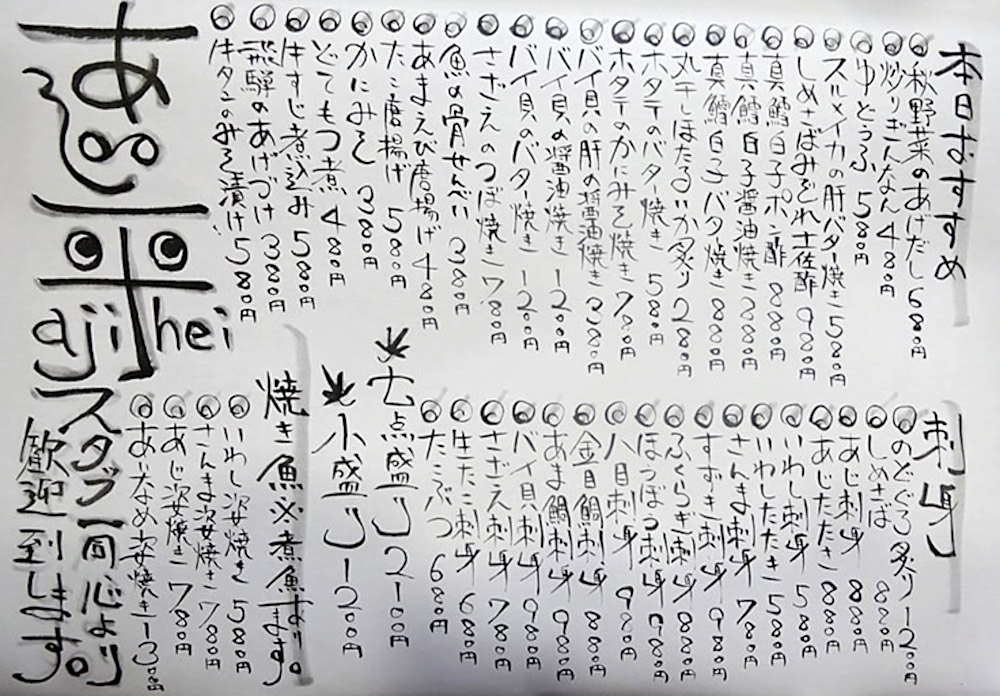 本日おすすめ
◎秋野菜のあげだし 680円
◎炒りぎんなん 480円
◎ゆどうふ 580円
◎スルメイカの肝バター焼き 580円
◎しめさばみぞれ土佐酢 980円
◎真鱈白子ポン酢 880円
◎真鱈白子醤油焼き 880円
◎真鱈白子バタ焼き 880円
◎丸干しほたるいか炙り 280円
◎ホタテのバター焼き 580円
◎ホタテのかにみそ焼き 780円
◎バイ貝の肝の醤油焼き 380円
◎バイ貝の醤油焼き 1200円
◎バイ貝のバター焼き 1200円
◎さざえのつぼ焼き 780円
◎魚の骨せんべい 380円
◎あまえび唐揚げ 480円
◎たこ唐揚げ 580円
◎かにみそ 380円
◎どてもつ煮 480円
◎牛すじ煮込み 580円
◎飛騨のあげづけ 380円
◎牛タンのみそ漬け 580円
刺身
◎のどぐろ炙り 1200円
◎しめさば 880円
◎あじ刺身 880円
◎あじたたき 880円
◎いわし刺身 580円
◎いわしたたき 580円
◎さんま刺身 780円
◎すずき刺身 980円
◎ふくらぎ刺身 880円
◎ほうぼう刺身 980円
◎八目刺身 980円
◎金目鯛刺身 880円
◎あま鯛刺身 980円
◎バイ貝刺身 980円
◎さざえ刺身 780円
◎生たこ刺身 680円
◎たこぶつ 680円
七点盛り 2100円
小盛り 1200円
焼き魚※煮魚有り〼。
◎いわし姿焼き 580円
◎さんま姿焼き 780円
◎あじ姿焼き 780円
◎あいなめ姿焼き 1300円
あじ平
aji hei
スタッフ一同心より
歓迎致します。